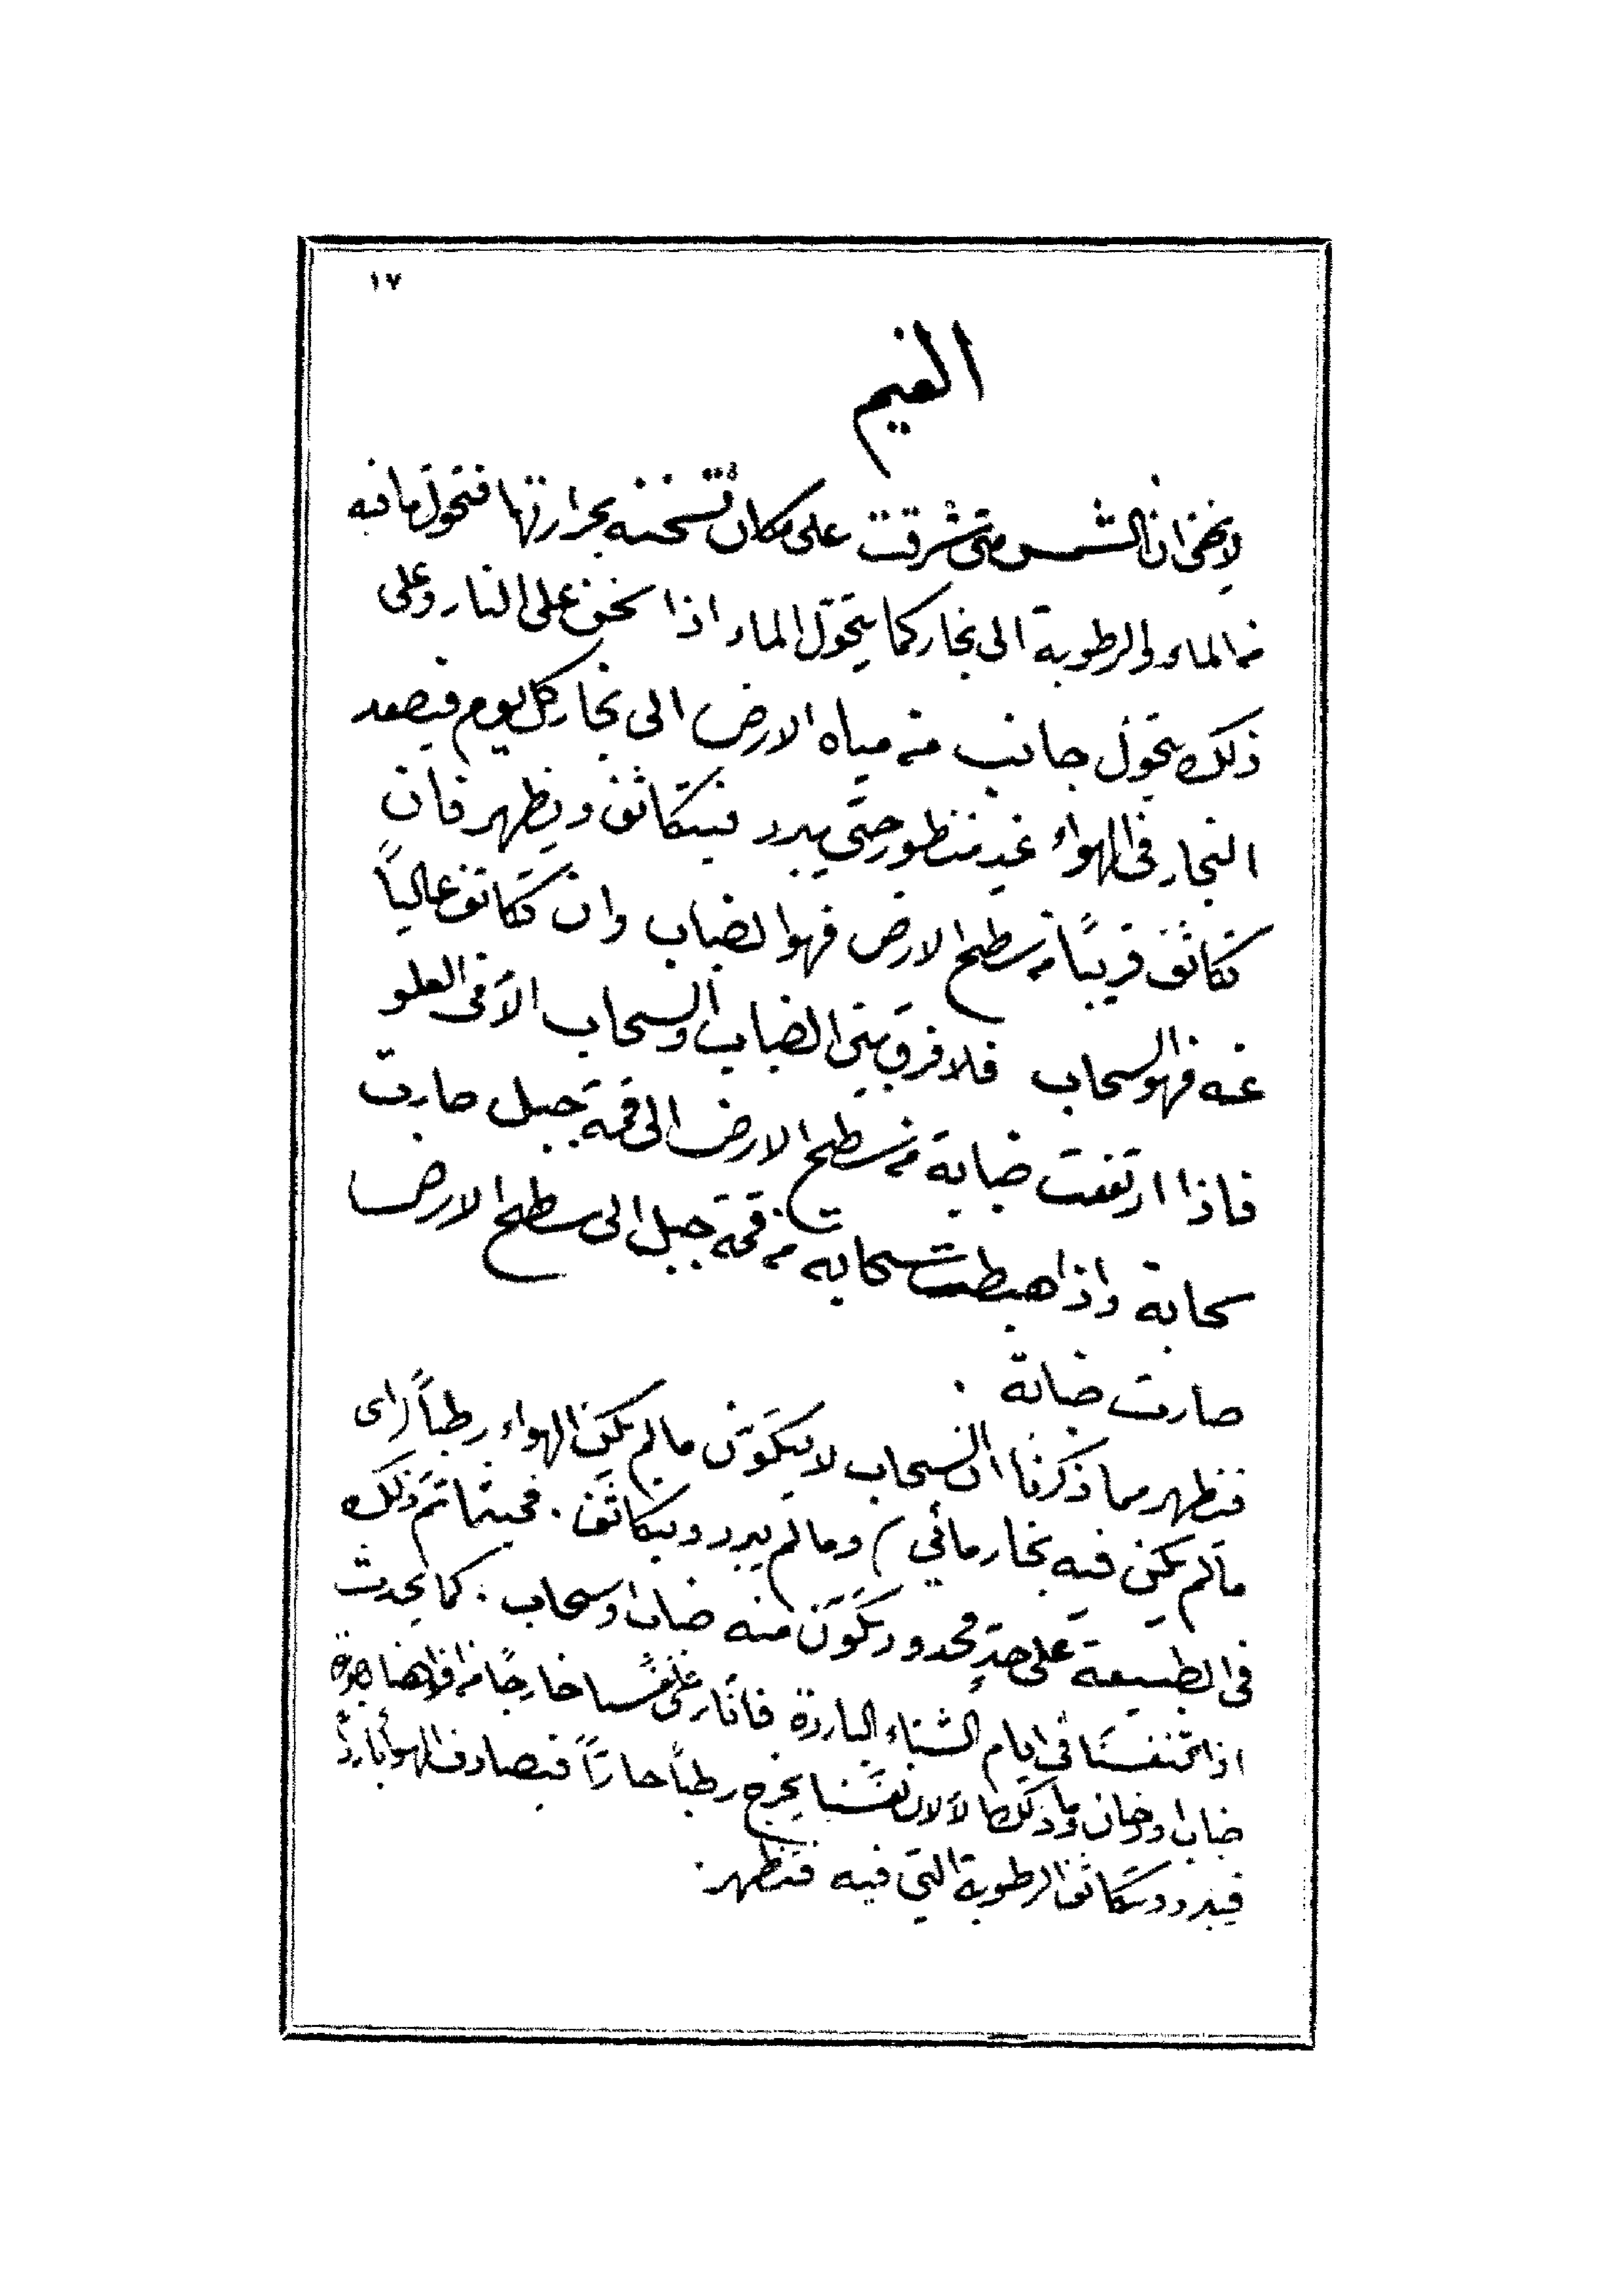 ١٧
الغيم
لا يخفى ان الشمس متى شرقت على مكان تسخنه بحرارتها فتحول ما فيه
من الماء والرطوبة الى بخار كما يتحوّل الماء اذا سخن على النار وعلى
ذلك يتحوّل جانب من مياه الارض الى بخار كل يوم فيصعد
البخار فى الهواء غير منظور حتى يبرد فيتكاثف ويظهر فان
تكاثف قريبًا من سطح الارض فهو الضباب وان تكاثف عاليًا
عنه فهو السحاب فلا فرق بين الضباب والسحاب الّا فى العلو
فاذا ارتفعت ضبابة من سطح الارض الى قمة جبل صارت
سحابة واذا هبطت سحابة من قمة جبل الى سطح الارض
صارت ضبابة .
فتظهر مما ذكرنا ان السحاب لا يتكوّن ما لم يكن الهواء رطبًا (اى
ما لم يكن فيه بخار مائي) وما لم يبرد ويتكاثف . فحيثما تم ذلك
فى الطبيعة على حدٍ محدود تكوّن منه ضباب او سحاب . كما يحدث
اذا تنفسنا فى ايام الشتاء الباردة فاننا نرى نفَسنا خارجًا من افواهنا بصورة
ضباب او دخان وما ذلك الّا لان نفَسنا يخرج رطبًا حارًّا فيصادف الهواء باردًا
فيبرد وتتكاثف الرطوبة التي فيه فتظهر .